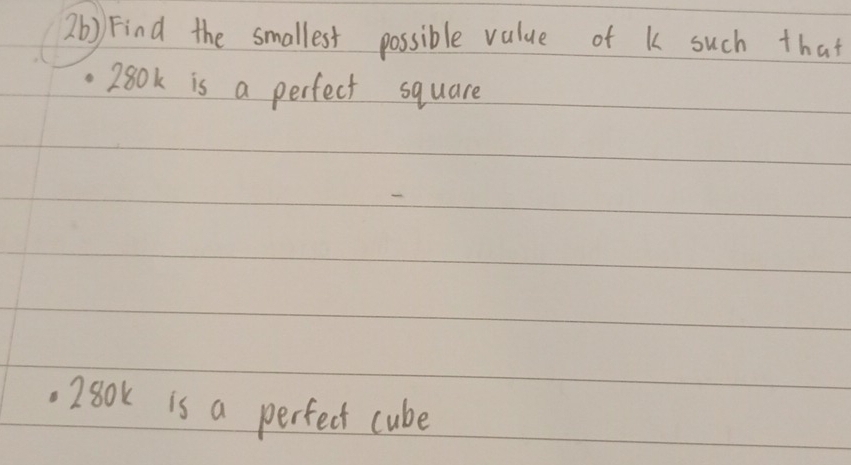 2b) Find the smallest possible value of k such that
• 280k is a perfect square
• 280k is a perfect cube